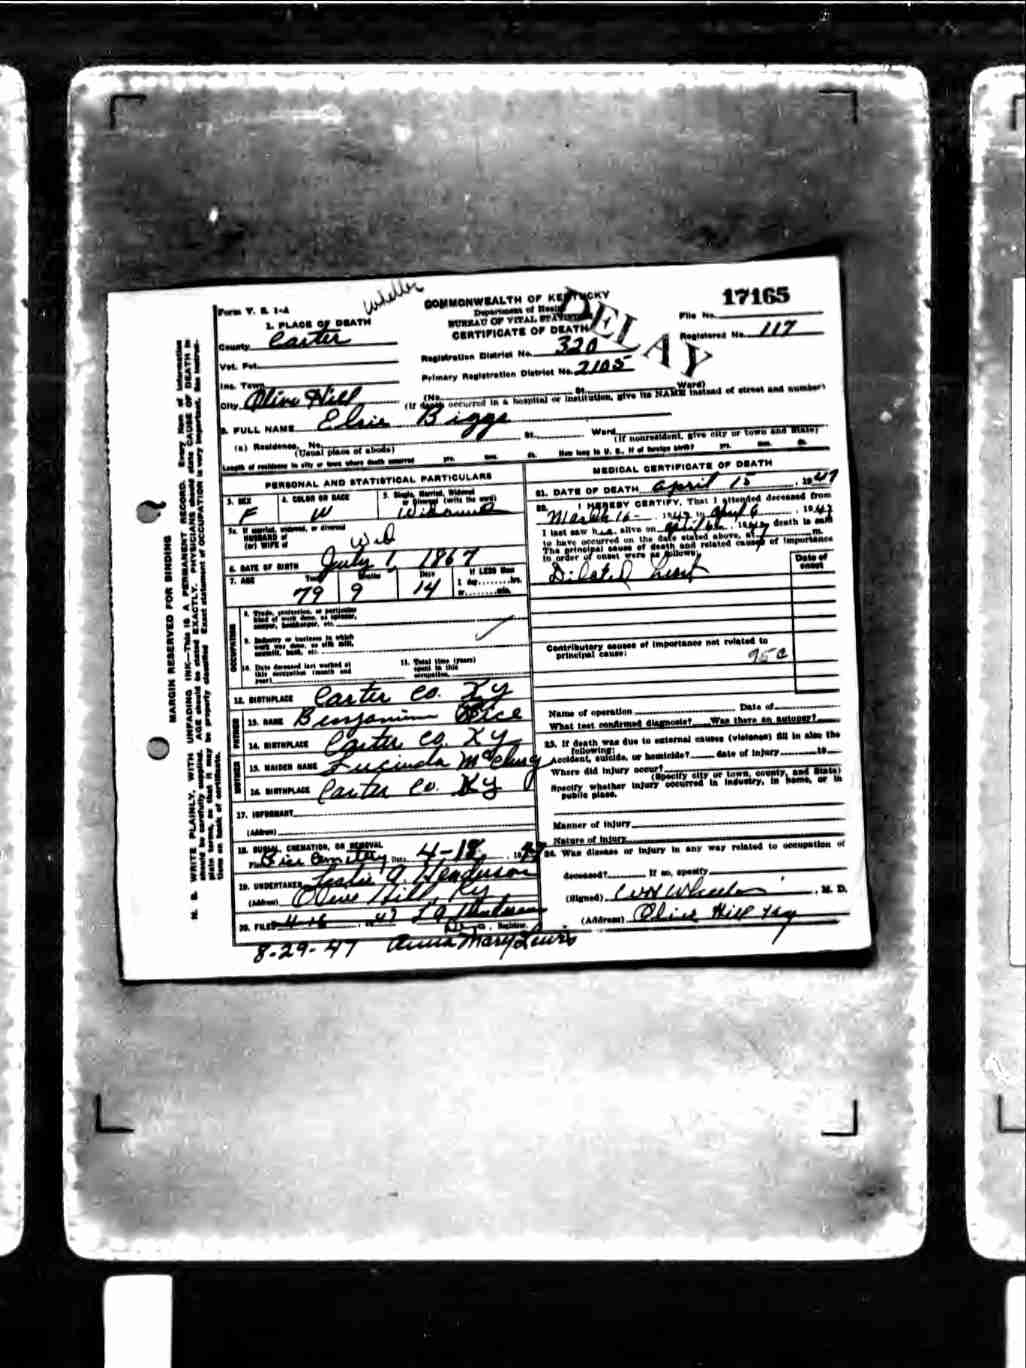 Wheeler
Form V. S. 1-A
COMMONWEALTH OF KENTUCKY
Department of Health
BUREAU OF VITAL STATISTICS
CERTIFICATE OF DEATH
DELAY
17165
File No.
Registered No. 117
1. PLACE OF DEATH
County Carter
Vot. Pct.
Inc. Town
City Olive Hill
Registration District No. 320
Primary Registration District No. 2105
(No. St. Ward)
(If death occurred in a hospital or institution, give its NAME instead of street and number)
2. FULL NAME Elsie Biggs
(a) Residence, No. St. Ward
(Usual place of abode) (If nonresident, give city or town and State)
Length of residence in city or town where death occurred yrs. mos. ds. How long in U. S., if of foreign birth? yrs. mos. ds.
PERSONAL AND STATISTICAL PARTICULARS
3. SEX F
4. COLOR OR RACE W
5. Single, Married, Widowed or Divorced (write the word) Widowed
5a. If married, widowed, or divorced
HUSBAND of
(or) WIFE of Wid
6. DATE OF BIRTH July 1, 1867
7. AGE Years 79 Months 9 Days 14 If LESS than 1 day hrs. or min.
OCCUPATION
8. Trade, profession, or particular kind of work done, as spinner, sawyer, bookkeeper, etc.
9. Industry or business in which work was done, as silk mill, sawmill, bank, etc.
10. Date deceased last worked at this occupation (month and year)
11. Total time (years) spent in this occupation
12. BIRTHPLACE Carter Co. Ky
FATHER
13. NAME Benjamin Rice
14. BIRTHPLACE Carter Co. Ky
MOTHER
15. MAIDEN NAME Lucinda McClurg
16. BIRTHPLACE Carter Co. Ky
17. INFORMANT
(Address)
18. BURIAL, CREMATION, OR REMOVAL
Place Rice Cemetery Date 4-18, 1947
19. UNDERTAKER Leslie A. Henderson
(Address) Olive Hill, Ky
20. FILED 4-16, 1947 L A Henderson
Registrar.
8-29-47 Anna Mary Lewis
MEDICAL CERTIFICATE OF DEATH
21. DATE OF DEATH April 15, 1947
22. I HEREBY CERTIFY, That I attended deceased from
March 16, 1947 to April 6, 1947
I last saw h alive on April 6, 1947 death is said
to have occurred on the date stated above, at m.
The principal cause of death and related causes of importance
in order of onset were as follows:
Date of onset
Dilated heart
Contributory causes of importance not related to principal cause:
95c
Name of operation Date of
What test confirmed diagnosis? Was there an autopsy?
23. If death was due to external causes (violence) fill in also the following:
Accident, suicide, or homicide? date of injury 19
Where did injury occur?
(Specify city or town, county, and State)
Specify whether injury occurred in industry, in home, or in public place.
Manner of injury
Nature of injury
24. Was disease or injury in any way related to occupation of
deceased? If so, specify
(Signed) Wheeler, M. D.
(Address) Olive Hill Ky
MARGIN RESERVED FOR BINDING
N. B. WRITE PLAINLY, WITH UNFADING INK—THIS IS A PERMANENT RECORD. Every item of information
should be carefully supplied. AGE should be stated EXACTLY. PHYSICIANS should state CAUSE OF DEATH in
plain terms, so that it may be properly classified. Exact statement of OCCUPATION is very important. See instructions on back of certificate.